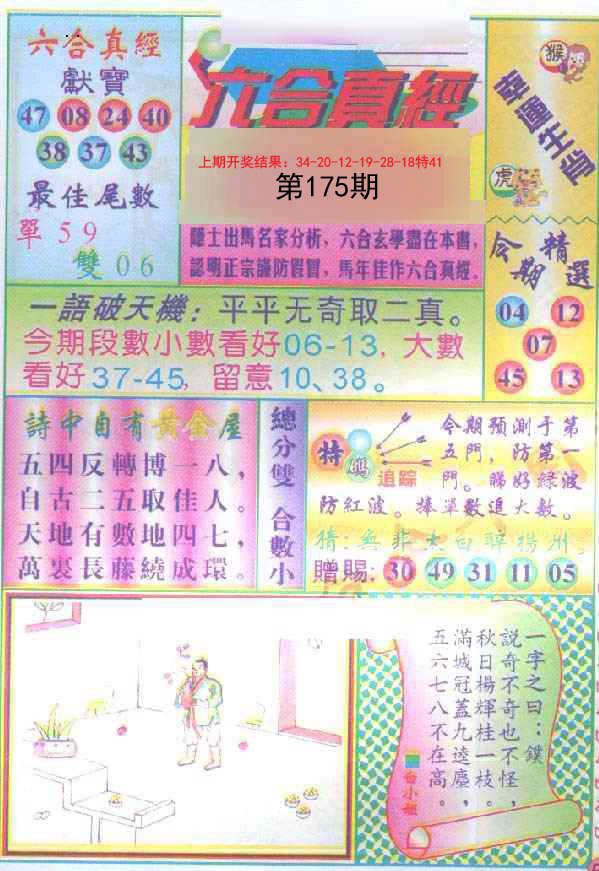 六合真經
獻寶
47 08 24 40
38 37 43
最佳尾數
單59
雙06
六合真經
上期开奖结果：34-20-12-19-28-18特41
第175期
隱士出馬名家分析，六合玄學盡在本書，
認明正宗謹防假冒，馬年佳作六合真經．
猴
幸運生肖
虎
今期精選
04 12
07
45 13
一語破天機：平平无奇取二真。
今期段數小數看好06-13，大數
看好37-45，留意10、38。
詩中自有黃金屋
五四反轉博一八，
自古二五取佳人。
天地有數地四七，
萬裏長藤繞成環。
總分雙 合數小
特碼
追踪
今期預測于第
五門，防第一
門。睇好綠波
防紅波。捧單數追大數。
猜：無非太白醉揚洲。
贈賜：30 49 31 11 05
一字之曰：鏷
說奇不奇也不怪，
秋日楊輝桂一枝。
滿城冠蓋九逵塵，
五六七八不在高。
白小姐